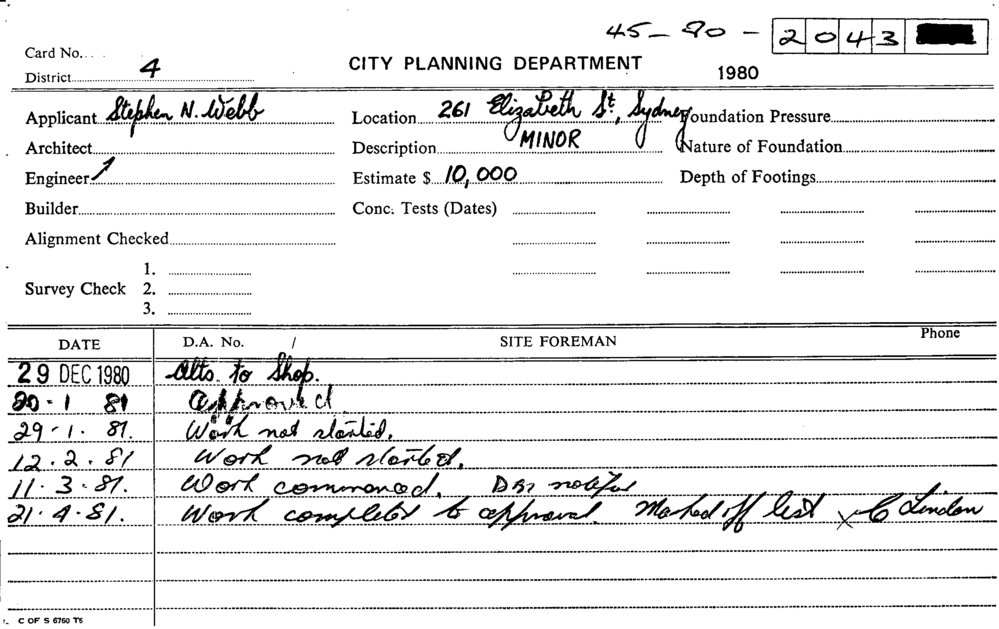 45-80-2043
Card No.
District 4
CITY PLANNING DEPARTMENT 1980
Applicant Stephen N. Webb Location 261 Elizabeth St, Sydney Foundation Pressure
Architect Description MINOR Nature of Foundation
Engineer Estimate $ 10,000 Depth of Footings
Builder Conc. Tests (Dates)
Alignment Checked
1.
Survey Check 2.
3.
DATE D.A. No. / SITE FOREMAN Phone
29 DEC 1980 Alts. to Shop.
20-1 81 Approved
29-1. 81. Work not started.
12.2.81 Work not started.
11.3.81. Work commenced.
21.4.81. Work completed to approval. Marked off list x C Lindon
C OF S 6760 T6